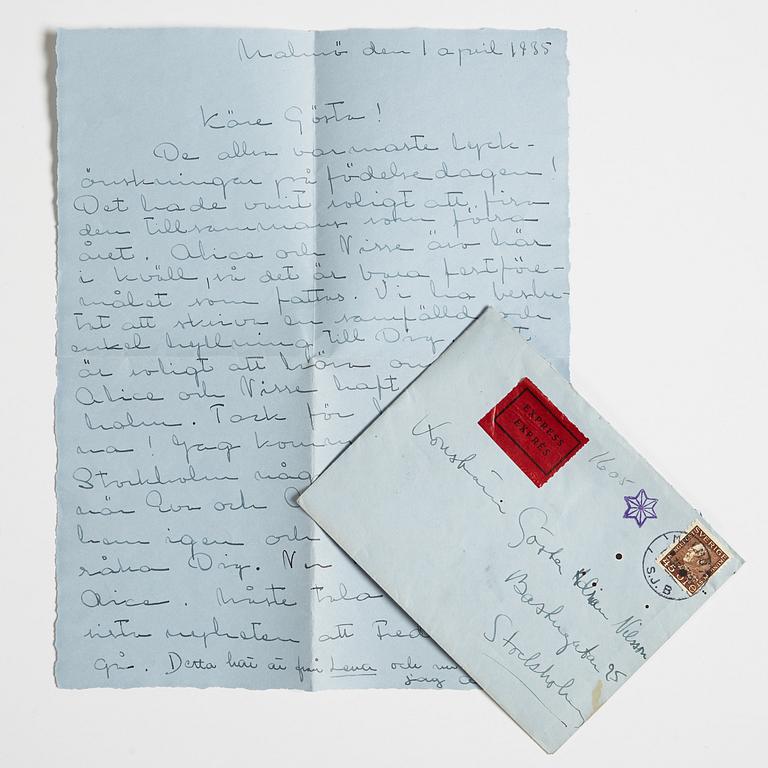 Malmö den 1 april 1935
Käre Gösta!
De allra varmaste lyck-
önskningar på födelsedagen!
Det hade varit roligt att fira
den tillsammans som förra
året. Alice och Nisse äro här
i kväll, så det är bara festföre-
målet som fattas. Vi ha beslu-
tat att skriva en samfälld och
enkel hyllning till Dig.
är roligt att höra
Alice och Nisse haft
holm. Tack för
na! Jag komm
Stockholm någ
när Eva och
hem igen och
råka Dig. Nu
Alice. Måste tala
sista nyheten att Fred
gå. Detta här är från Lena och nu
jag
EXPRESS
EXPRÈS
1605
Konstnären Gösta Adrian Nilsson
Bastugatan 25
Stockholm
SVERIGE
S.J.B.